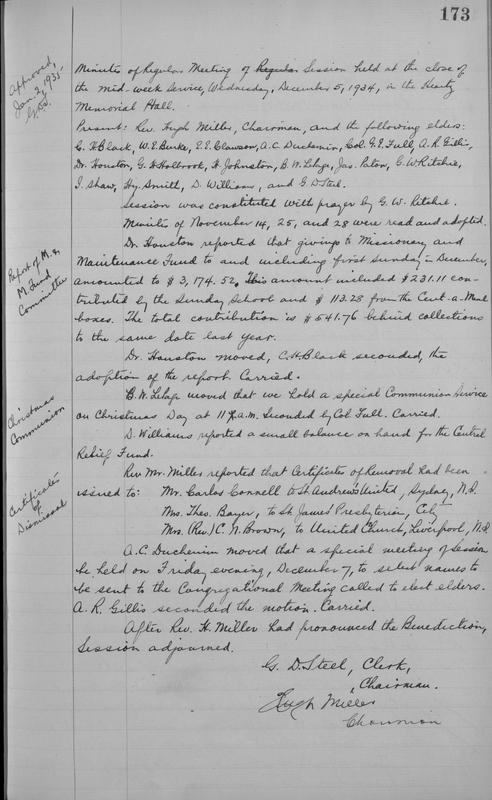 173
Approved,
Jan. 2, 1935
G.D.S.
Minutes of Regular Meeting of Regular Session held at the close of
the mid-week service, Wednesday, December 5, 1934, in the Heartz
Memorial Hall.
Present: Rev. Hugh Miller, Chairman, and the following elders:
C. H. Black, W. E. Burke, E. E. Clawson, A. C. Duchemin, Col. G. E. Full, A. R. Gillis,
Dr. Houston, G. H. Holbrook, H. Johnston, B. W. LePage, Jas. Paton, G. W. Ritchie,
I. Shaw, Hy. Smith, D. Williams, and G. D. Steel.
Session was constituted with prayer by G. W. Ritchie.
Minutes of November 14, 25, and 28 were read and adopted.
Report of M. &
M. Fund
Committee
Dr. Houston reported that givings to Missionary and
Maintenance Fund to and including first Sunday in December,
amounted to $3,174.52. This amount included $231.11 con-
tributed by the Sunday School and $113.28 from the Cent-a-Meal
boxes. The total contribution is $541.76 behind collections
to the same date last year.
Dr. Houston moved, C. H. Black seconded, the
adoption of the report. Carried.
Christmas
Communion
B. W. LePage moved that we hold a special Communion Service
on Christmas Day at 11 a.m. Seconded by Col. Full. Carried.
D. Williams reported a small balance on hand for the Central
Relief Fund.
Certificates
of
Dismissal
Rev. Mr. Miller reported that Certificates of Removal had been
issued to: Mr. Carlos Connell to St. Andrew's United, Sydney, N.S.
Mrs. Theo. Bayer, to St. James' Presbyterian, City
Mrs. (Rev.) C. N. Brown, to United Church, Liverpool, N.S.
A. C. Duchemin moved that a special meeting of Session
be held on Friday evening, December 7, to select names to
be sent to the Congregational Meeting called to elect elders.
A. R. Gillis seconded the motion. Carried.
After Rev. H. Miller had pronounced the Benediction,
Session adjourned.
G. D. Steel, Clerk,
, Chairman.
Hugh Miller
Chairman